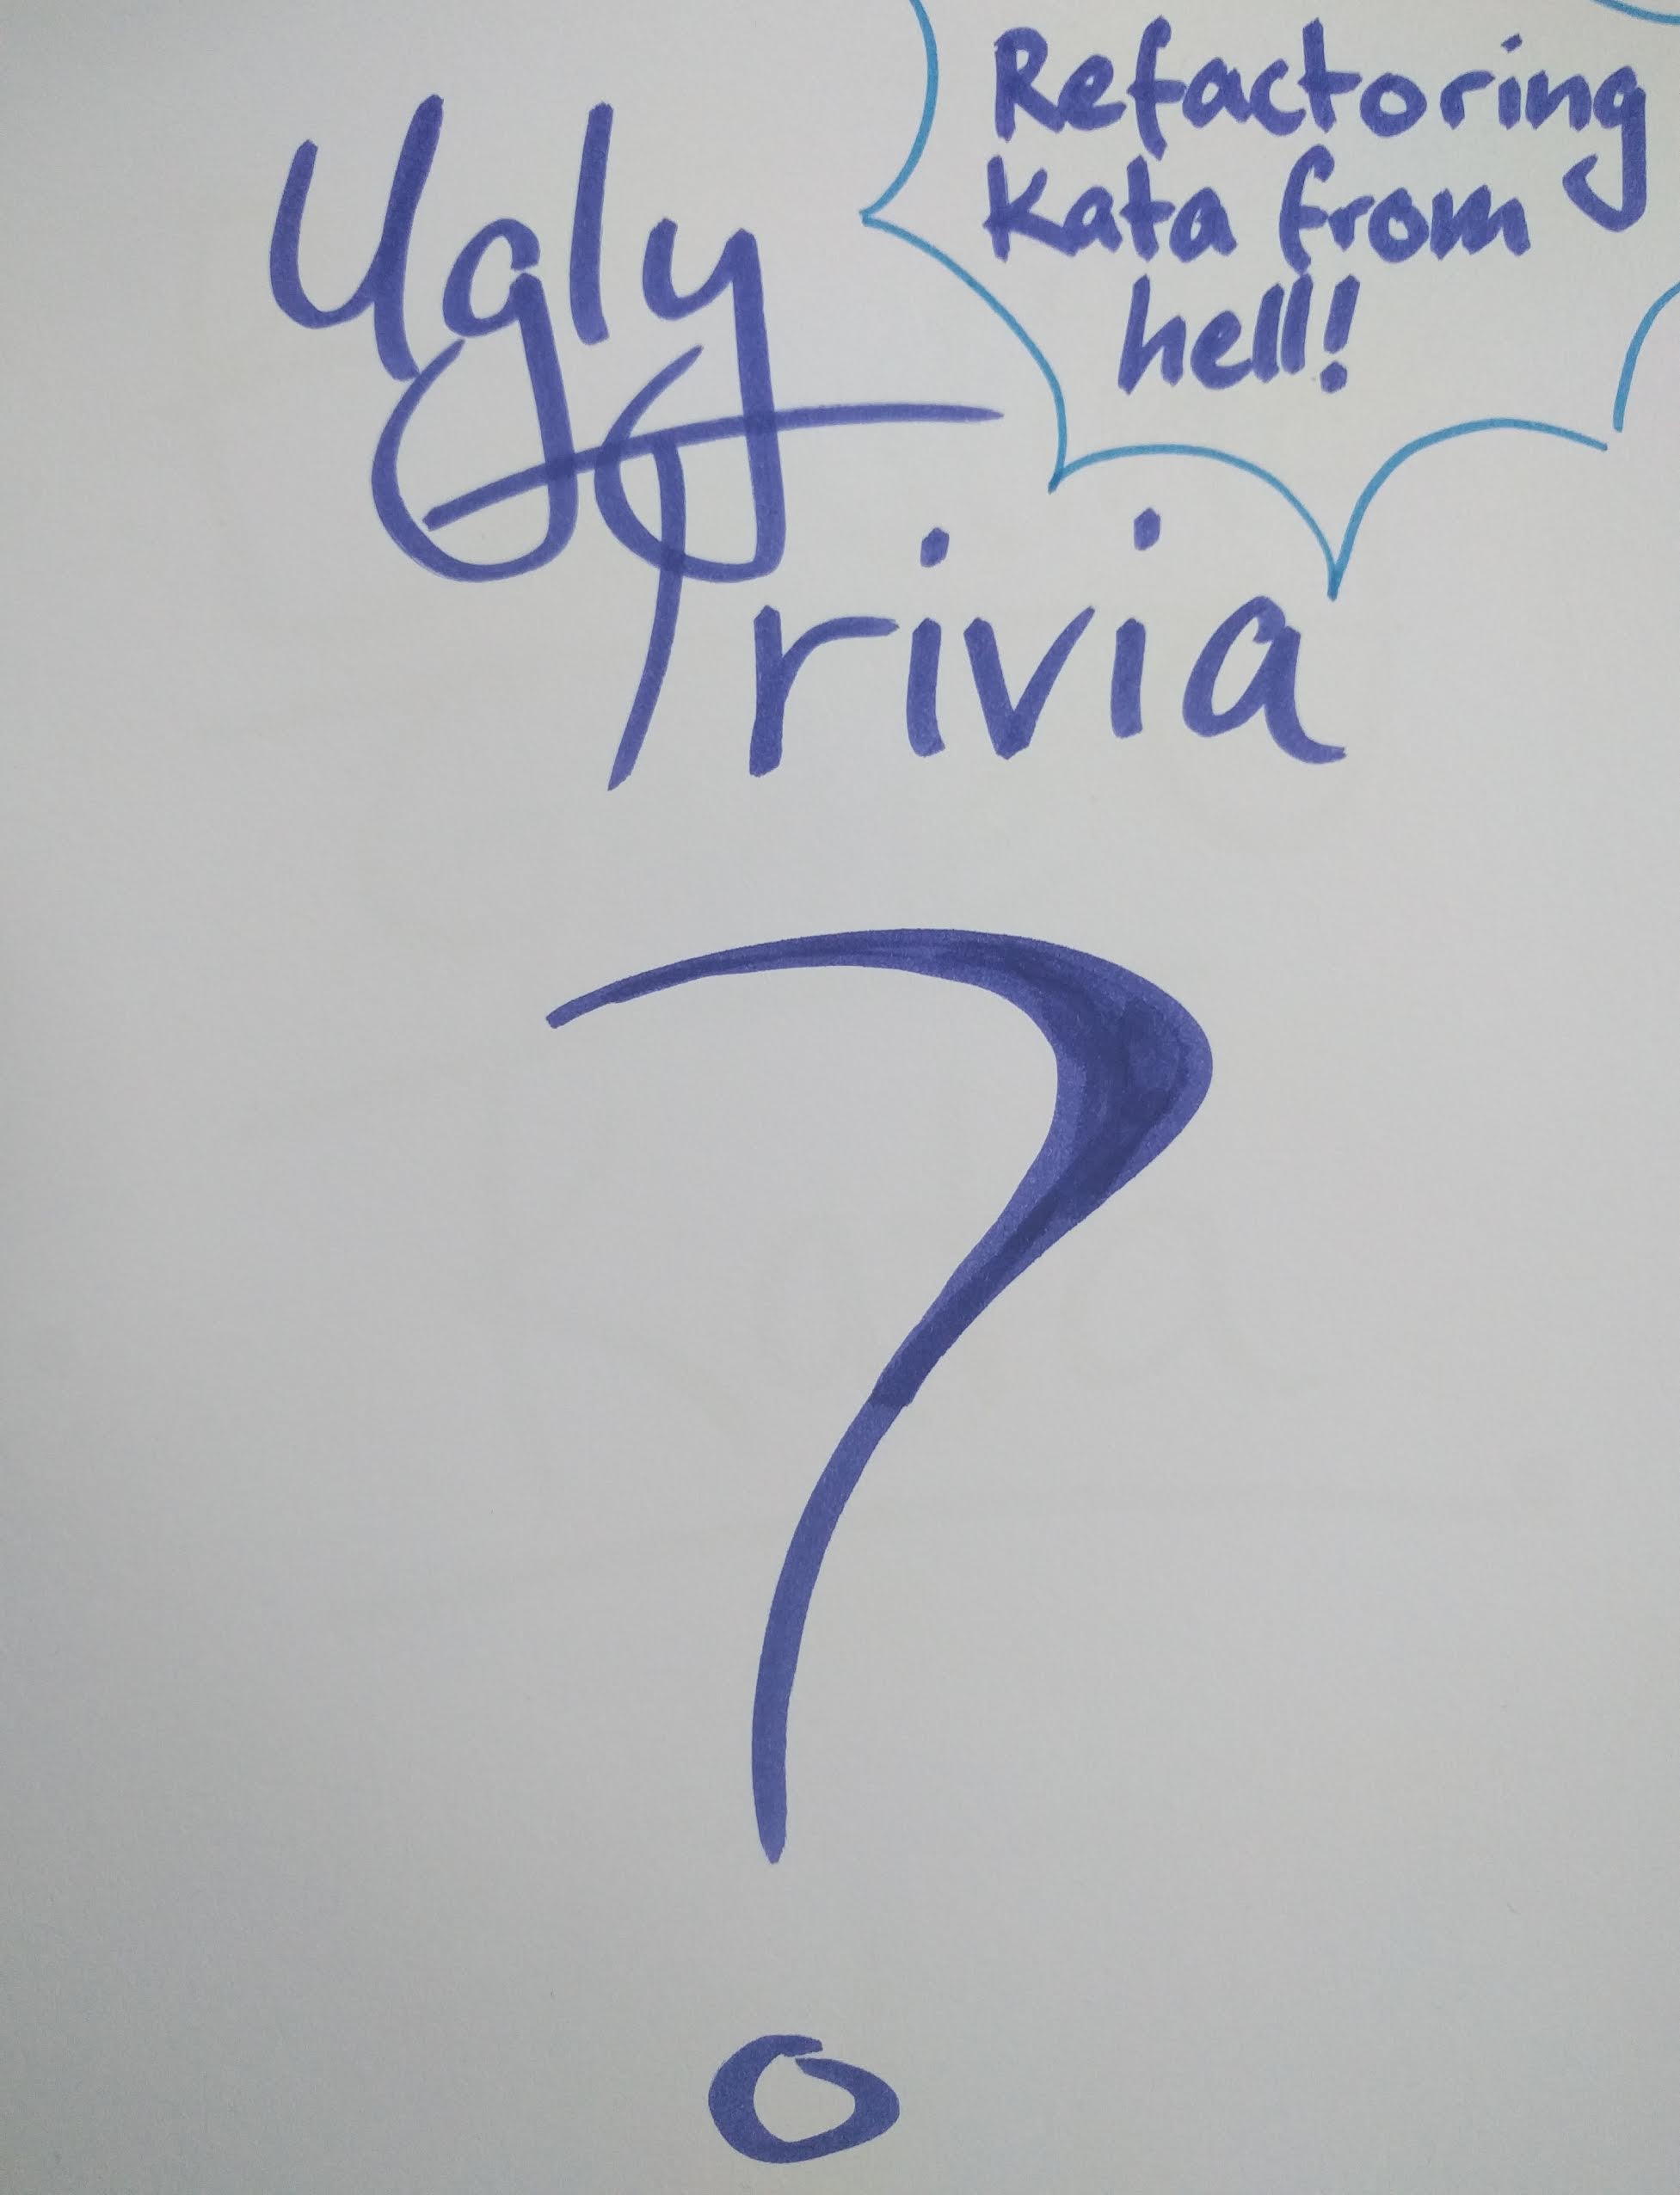 Ugly
Trivia
?
Refactoring
Kata from
hell!